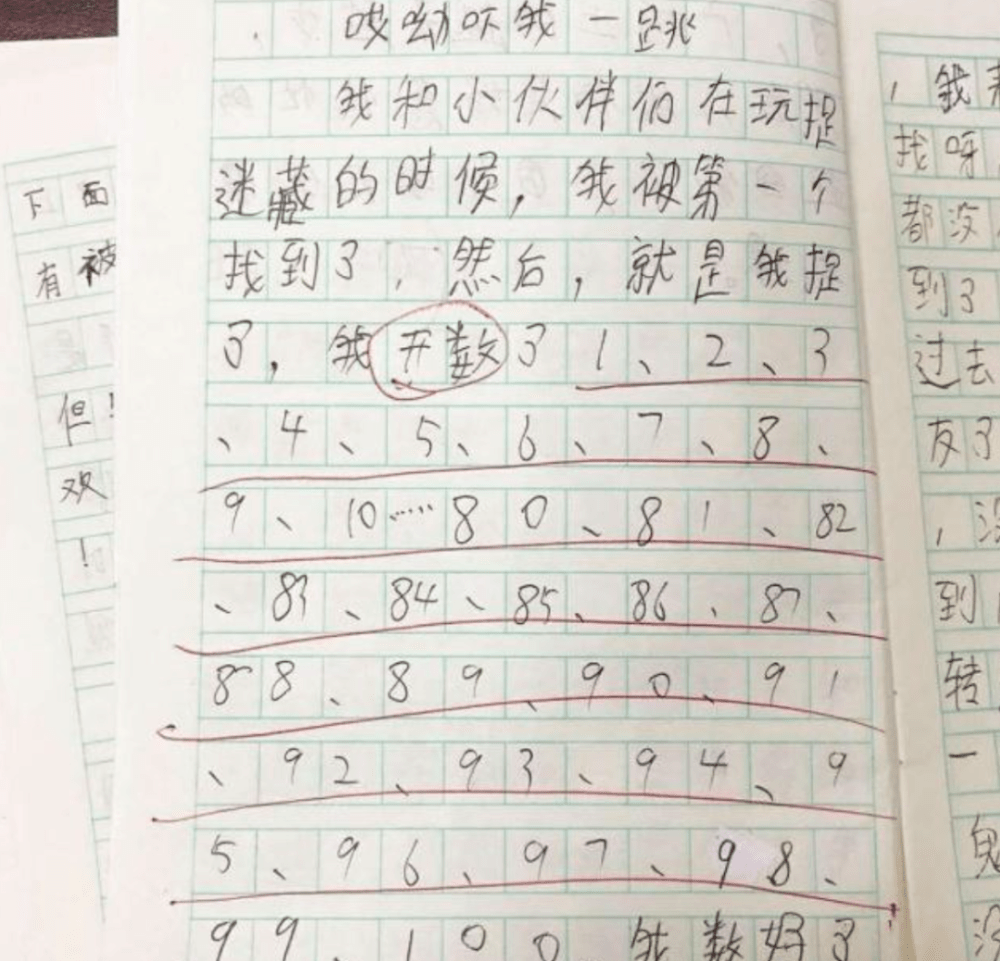 哎呦吓我一跳
我和小伙伴们在玩捉
迷藏的时候,我被第一个
找到了,然后,就是我捉
了,我开数了1、2、3
、4、5、6、7、8、
9、10……80、81、82
、83、84、85、86、87、
88、89、90、91
、92、93、94、9
5、96、97、98、
99、100 我数好了
下面
有被
但!
欢
!
,我
找呀
都没
到了
过去
友了
,没
到
转
一
鬼
没